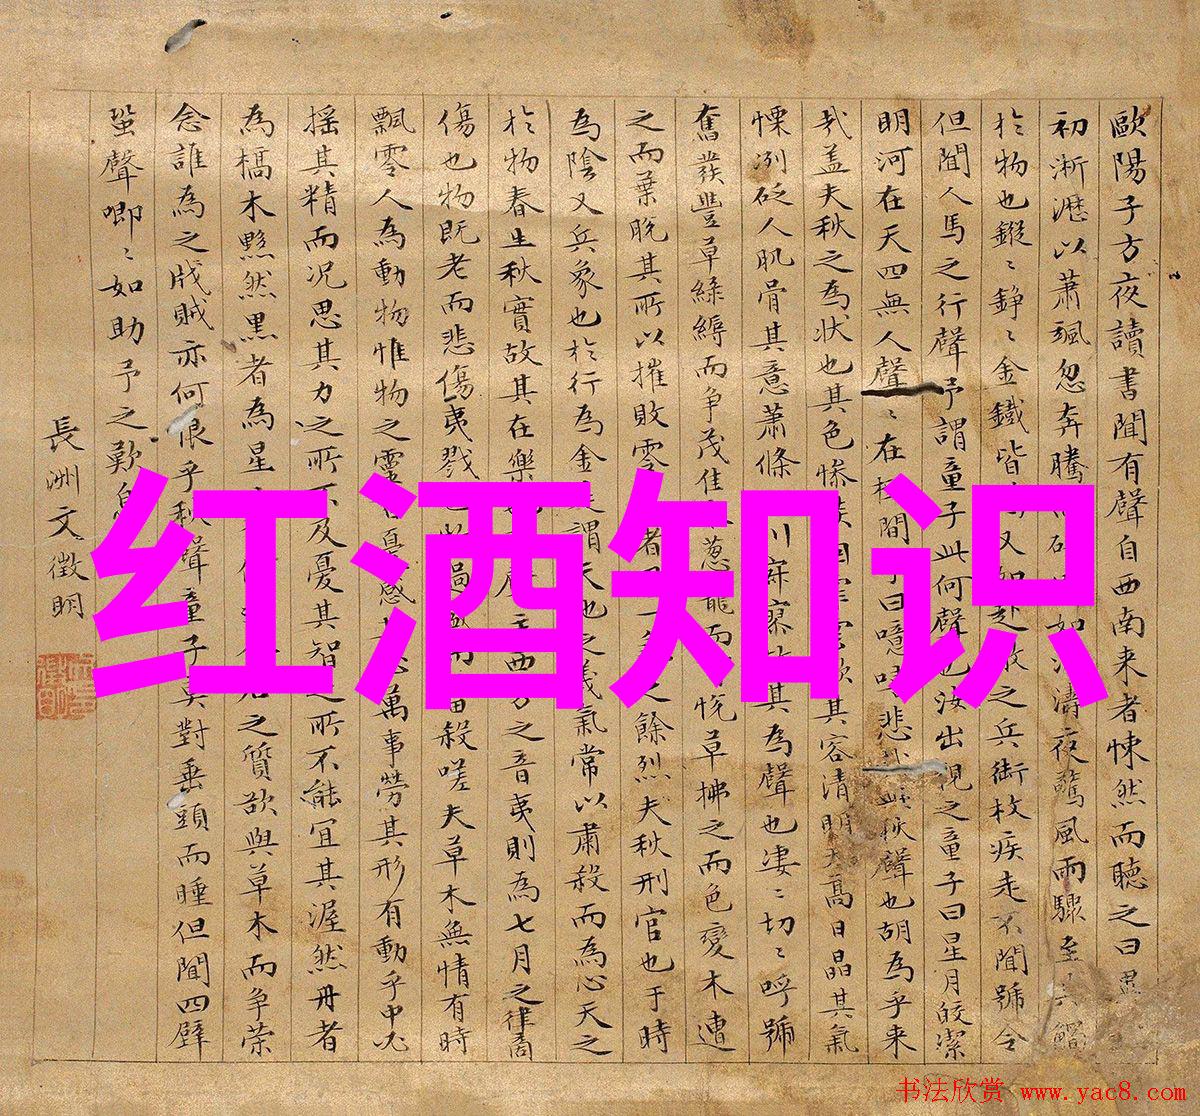 歐陽子方夜讀書聞有聲自西南来者悚然而聽之曰
初淅瀝以蕭颯忽奔騰如濤夜驚風雨驟至
於物也鏦〻錚〻金鐵皆又如赴敵之兵銜枚疾走不聞號令
但聞人馬之行聲予謂童子此何聲也汝出視之童子曰星月皎潔
明河在天四無人聲〻在樹間予曰噫嘻悲哉此秋聲也胡為乎来
哉盖夫秋之為狀也其色惨雲歛其容清明天高日晶其氣
慄洌砭人肌骨其意蕭條川寂寥故其為聲也凄〻切〻呼號
奮發豐草緑縟而争茂佳葱蘢而悦草拂之而色變木遭
之而葉脱其所以摧敗零者之餘烈夫秋刑官也于時
為陰又兵象也於行為金謂天地之義氣常以肅殺而為心天之
於物春生秋實故其在樂西方之音夷則為七月之律商
傷也物既老而悲傷夷戮過殺嗟夫草木無情有時
飄零人為動物惟物之靈感萬事勞其形有動乎中必
摇其精而况思其力之所不及憂其智之所不能宜其渥然丹者
為槁木黟然黒者為星之質欲與草木而争榮
念誰為之戕賊亦何恨乎秋聲童子莫對垂頭而睡但聞四壁
蛩聲唧〻如助予之歎息
長洲文徵明
红酒知识
书法欣赏 www.yac8.com